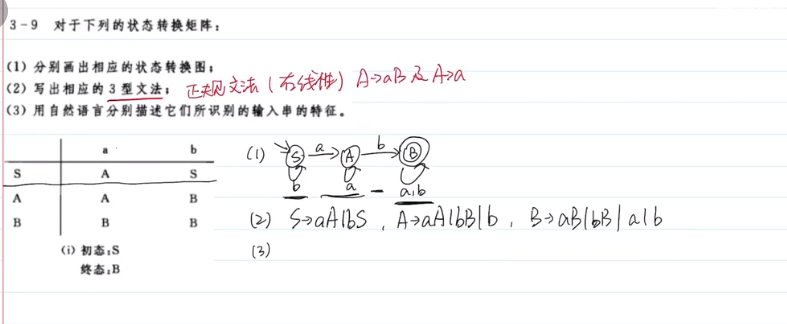 3-9 对于下列的状态转换矩阵:
(1) 分别画出相应的状态转换图;
(2) 写出相应的3型文法; 正规文法(右线性) A→aB 及 A→a
(3) 用自然语言分别描述它们所识别的输入串的特征。
a b
S A S
A A B
B B B
(i) 初态:S
终态:B
(1) S a A b B
b a a|b
(2) S→aA|bS , A→aA|bB|b , B→aB|bB|a|b
(3)